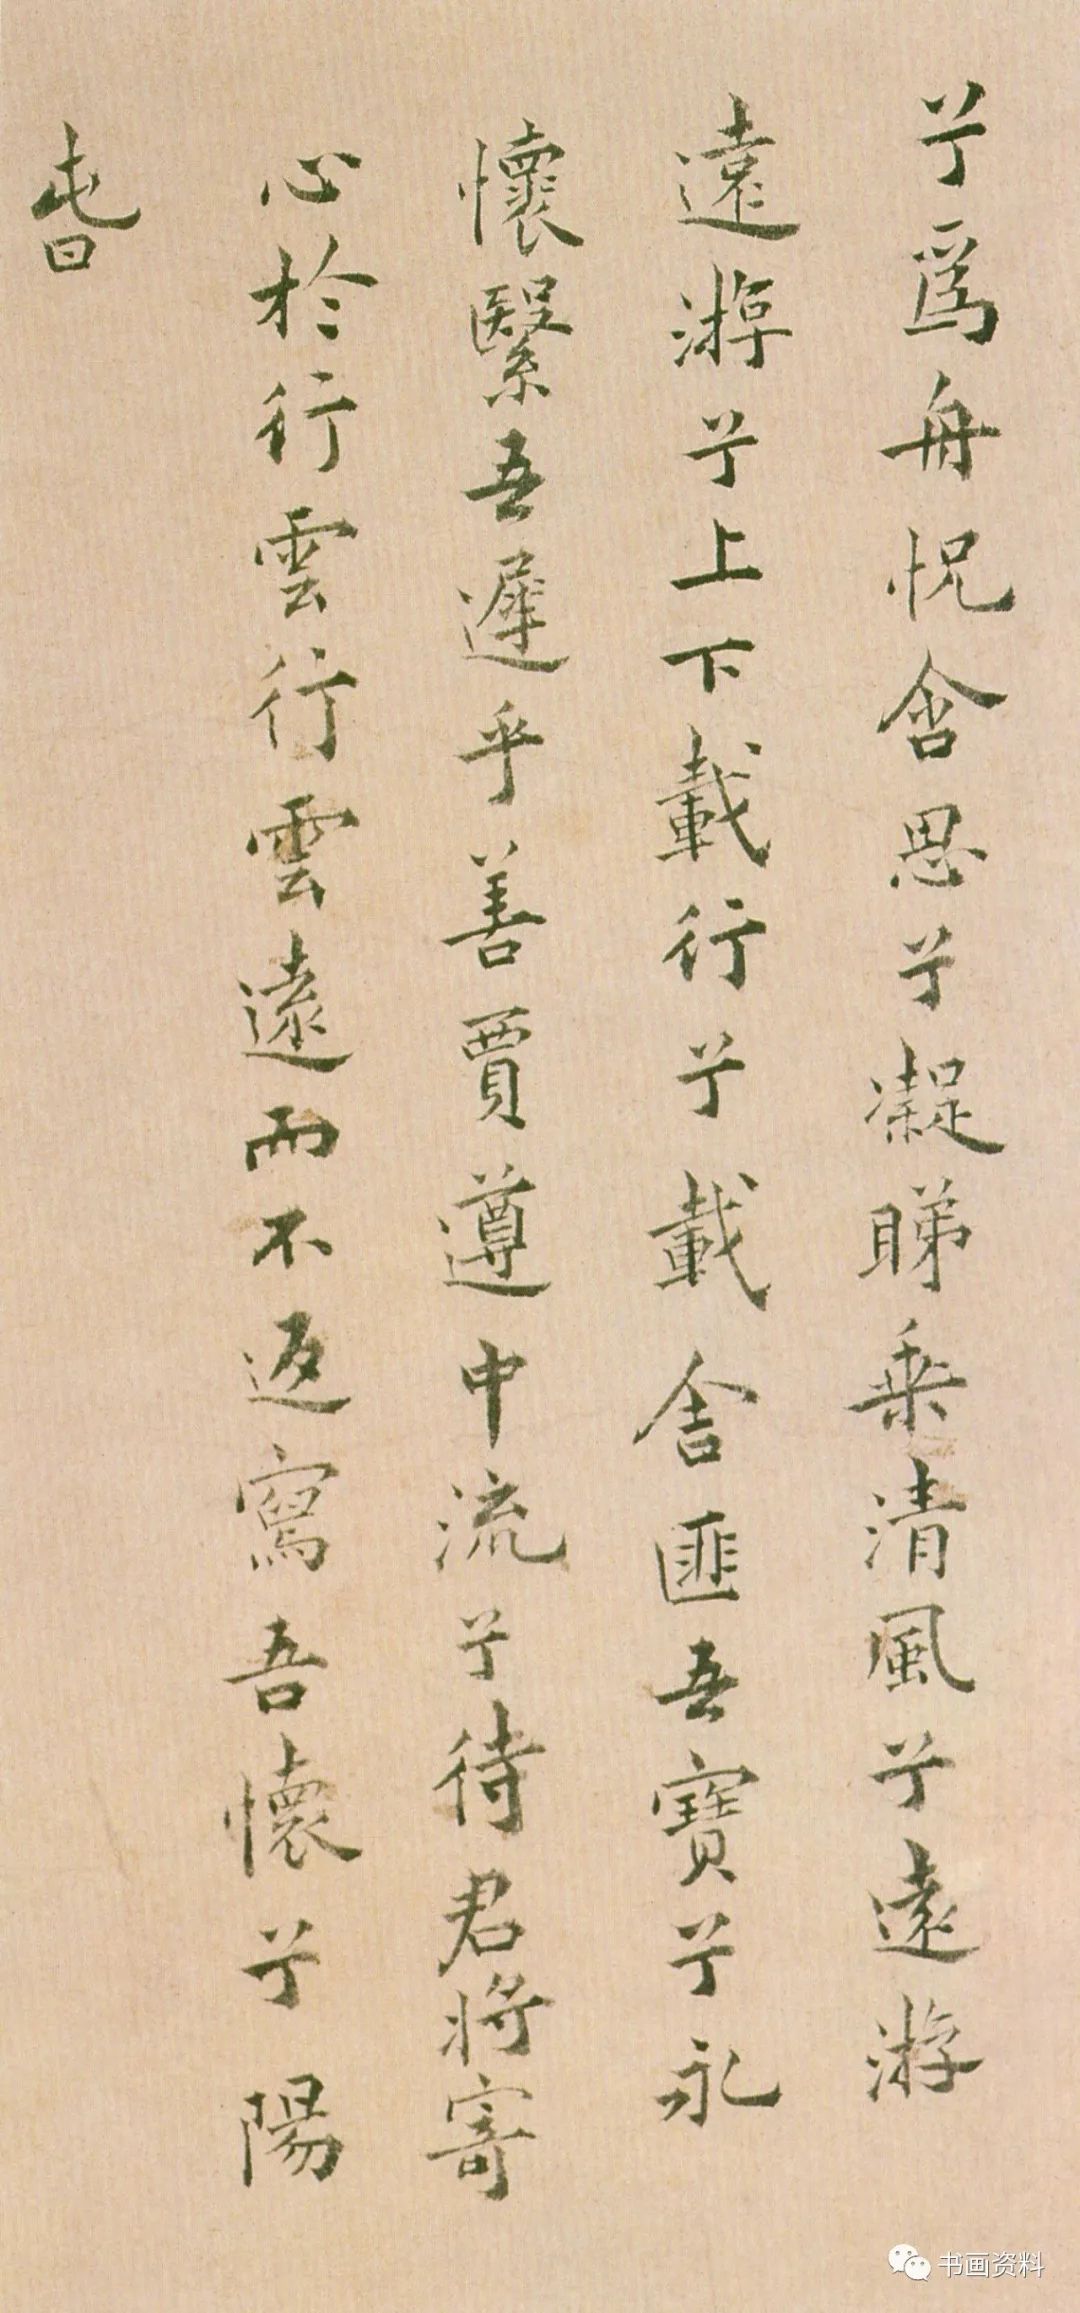 兮爲舟怳含思兮凝睇乗清風兮遠游
遠游兮上下載行兮載舍匪吾寶兮永
懷繄吾遲乎善賈遵中流兮待君將寄
心於行雲行雲遠而不返寫吾懷兮陽
春
书画资料